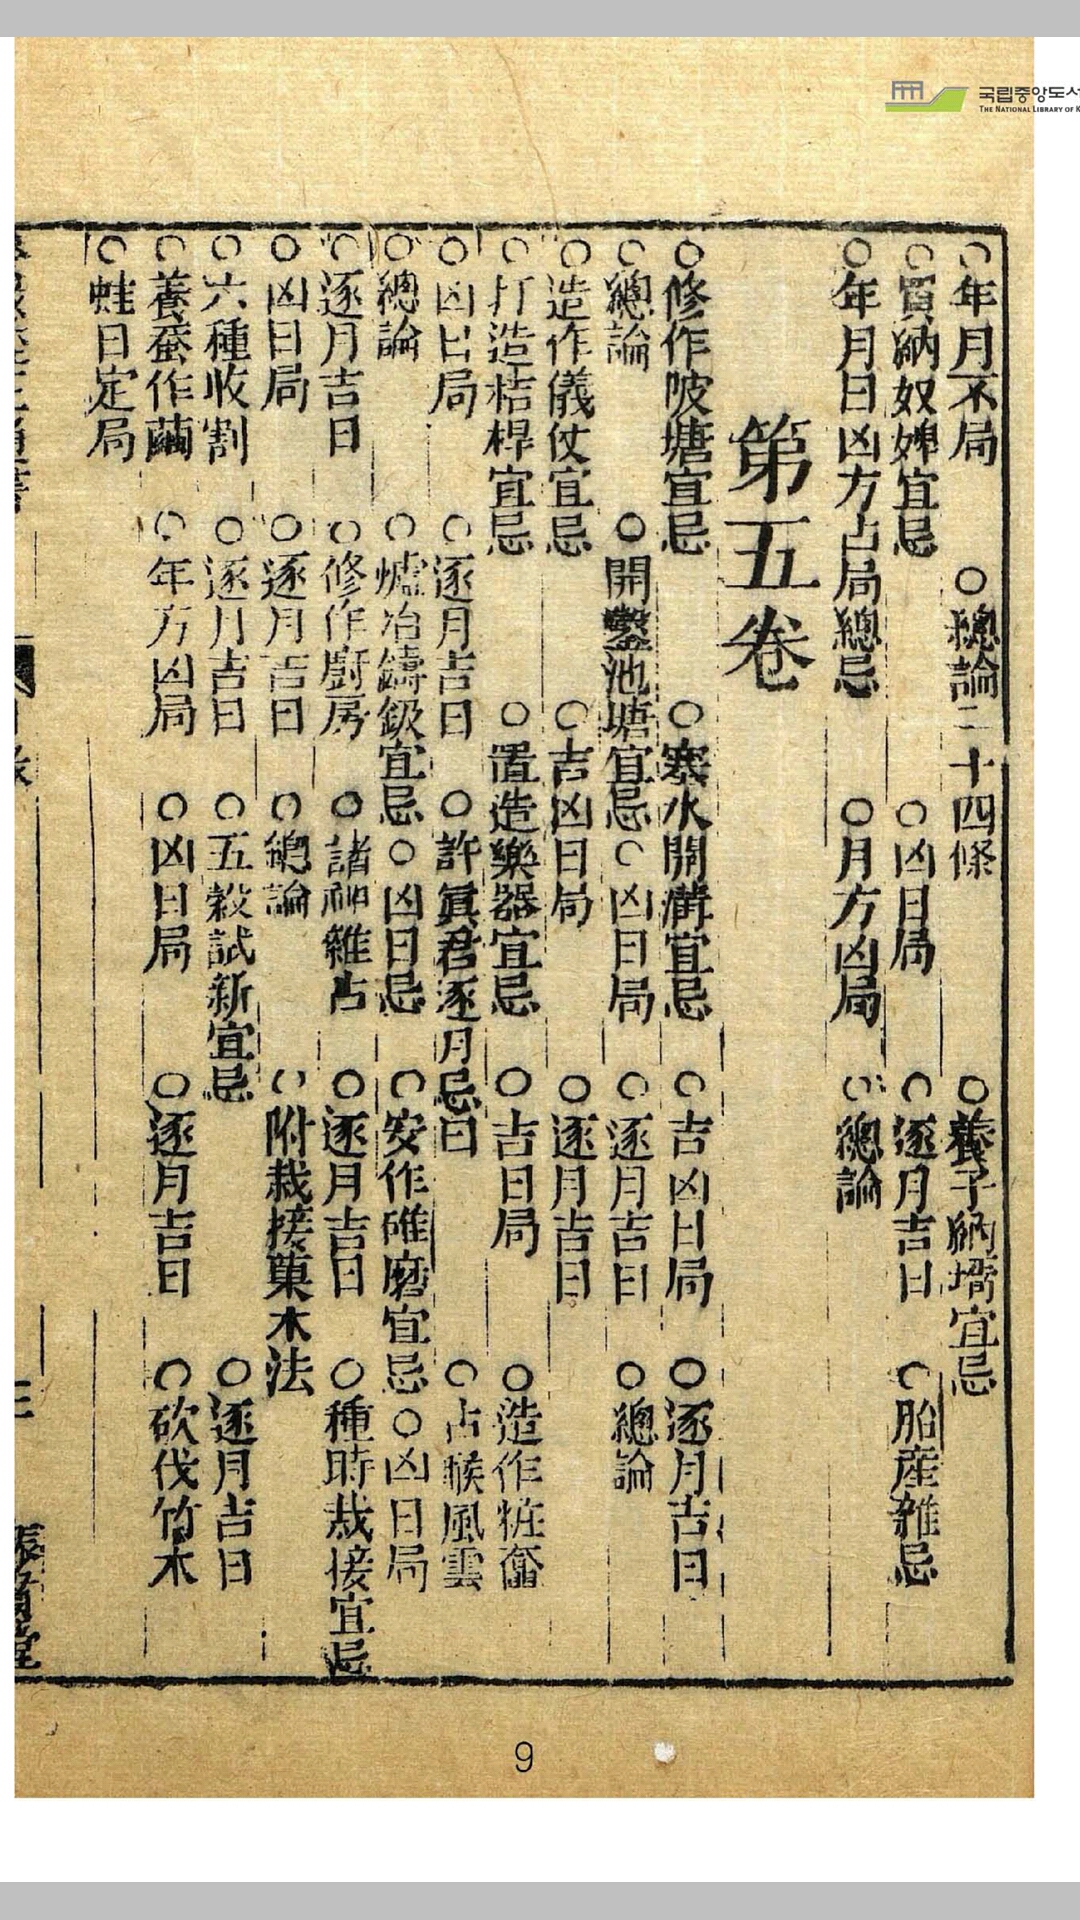 국립중앙도서
THE NATIONAL LIBRARY OF K
○年月不局○總論二十四條○養子納壻宜忌
○買納奴婢宜忌○凶日局○逐月吉日○胎産雜忌
○年月日凶方占局總忌○月方凶局○總論
第五卷
○修作陂塘宜忌○塞水開溝宜忌○吉凶日局○逐月吉日
○總論○開鑿池塘宜忌○凶日局○逐月吉日○總論
○造作儀仗宜忌○吉凶日局○逐月吉日
○打造桔槹宜忌○置造樂器宜忌○吉日局○造作粧奩
○凶日局○逐月吉日○許眞君逐月忌日○占候風雲
○總論○爐冶鑄鈒宜忌○凶日忌○安作碓磨宜忌○凶日局
○逐月吉日○修作廚房○諸神雜占○逐月吉日○種時栽接宜忌
○凶日局○逐月吉日○總論○附栽接菓木法
○六種收割○逐月吉日○五穀試新宜忌○逐月吉日
○養蚕作繭○年方凶局○凶日局○逐月吉日○砍伐竹木
○蛙日定局
9